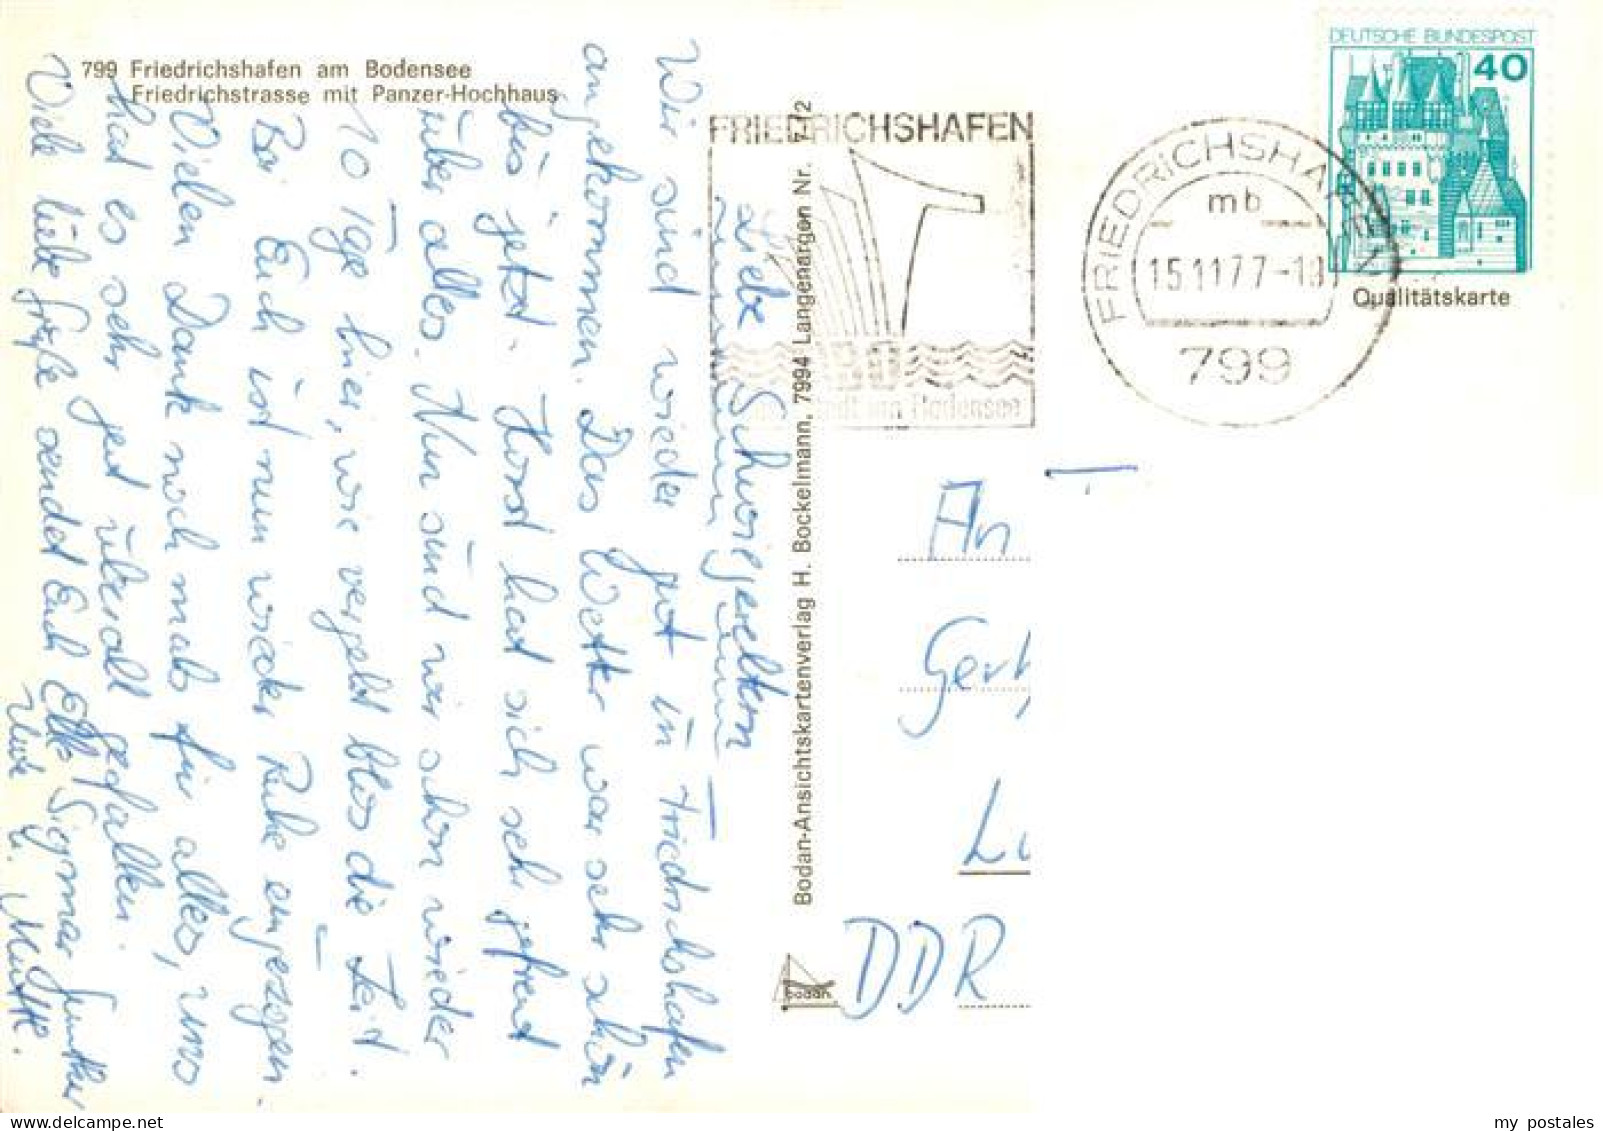 799 Friedrichshafen am Bodensee
Friedrichstrasse mit Panzer-Hochhaus
Liebe Schwiegereltern
Wir sind wieder gut in Friedrichshafen
angekommen. Das Wetter war sehr schön
bis jetzt. Horst hat sich sehr gefreut
über alles. Nun sind wir schon wieder
10 Tage hier, wie vergeht blos die Zeit.
Bei Euch ist nun wieder Ruhe eingezogen.
Vielen Dank noch mals für alles, uns
hat es sehr gut überall gefallen.
Viele liebe Grüße sendet Euch Elke Sigmar Gunther
u. Mutti.
Bodan-Ansichtskartenverlag H. Bockelmann, 7994 Langenargen Nr. 7-12
bodan
FRIEDRICHSHAFEN
am Bodensee
FRIEDRICHSHAFEN
mb
15.11.77-18
799
DEUTSCHE BUNDESPOST
40
Qualitätskarte
An
DDR
my postales